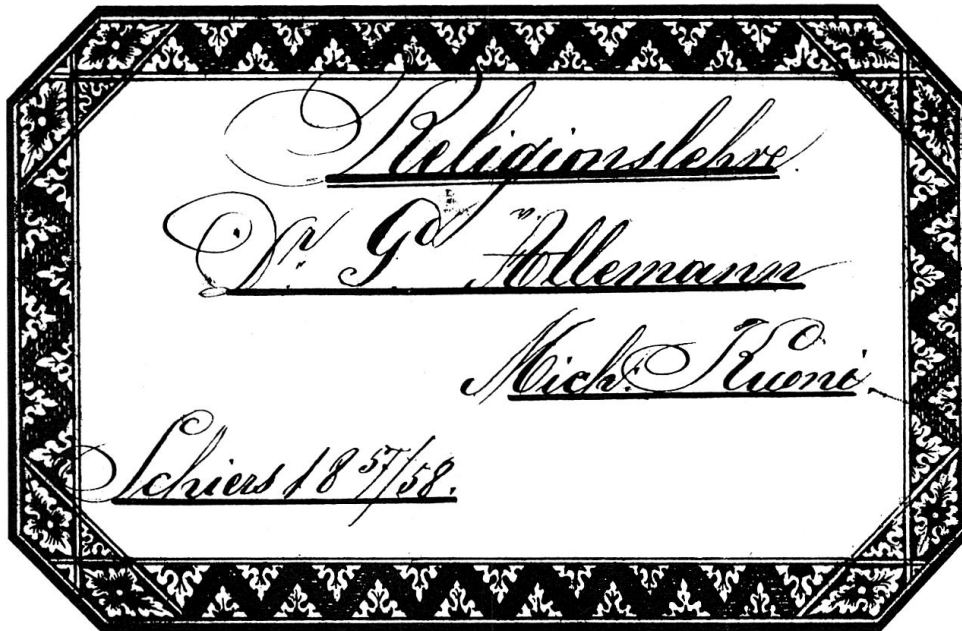 Religionslehre.
Dr. G. Allemann
Mich: Kuoni.
Schiers 18 57/58.